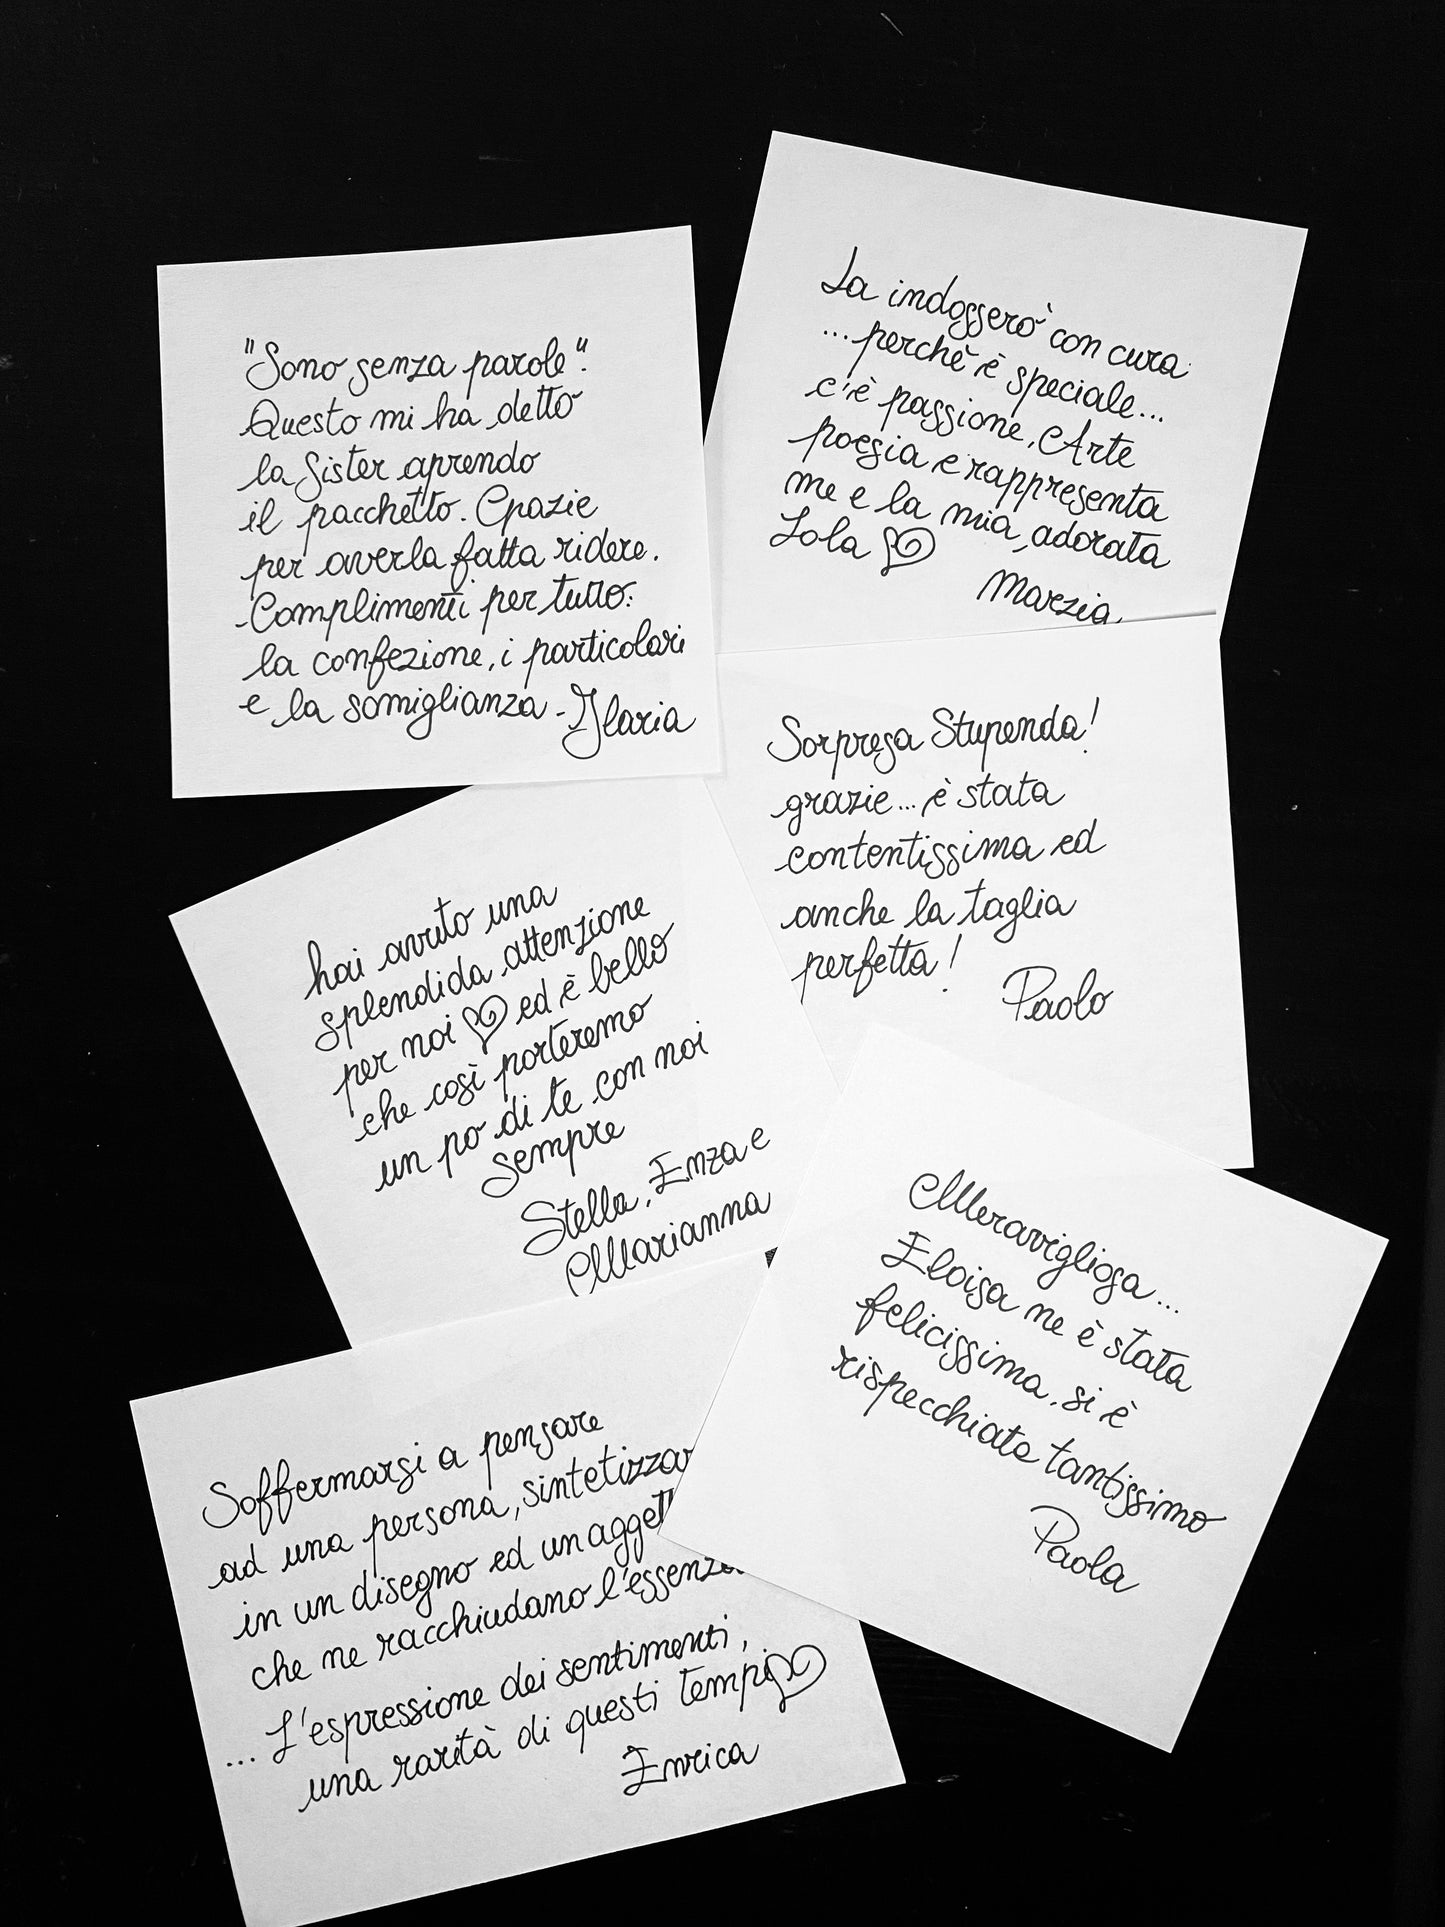 "Sono senza parole".
Questo mi ha detto
la Sister aprendo
il pacchetto. Grazie
per averla fatta ridere.
Complimenti per tutto:
la confezione, i particolari
e la somiglianza - Ilaria
La indosserò con cura
...perchè è speciale...
c'è passione, Arte
poesia e rappresenta
me e la mia adorata
Lola
Marzia
Sorpresa Stupenda!
grazie... è stata
contentissima ed
anche la taglia
perfetta!
Paolo
hai avuto una
splendida attenzione
per noi ed è bello
che così porteremo
un po di te con noi
sempre
Stella, Enza e
Marianna
Meravigliosa...
Eloisa ne è stata
felicissima, si è
rispecchiata tantissimo
Paola
Soffermarsi a pensare
ad una persona, sintetizzar
in un disegno ed un agget
che ne racchiudano l'essenza
... L'espressione dei sentimenti,
una rarità di questi tempi
Enrica